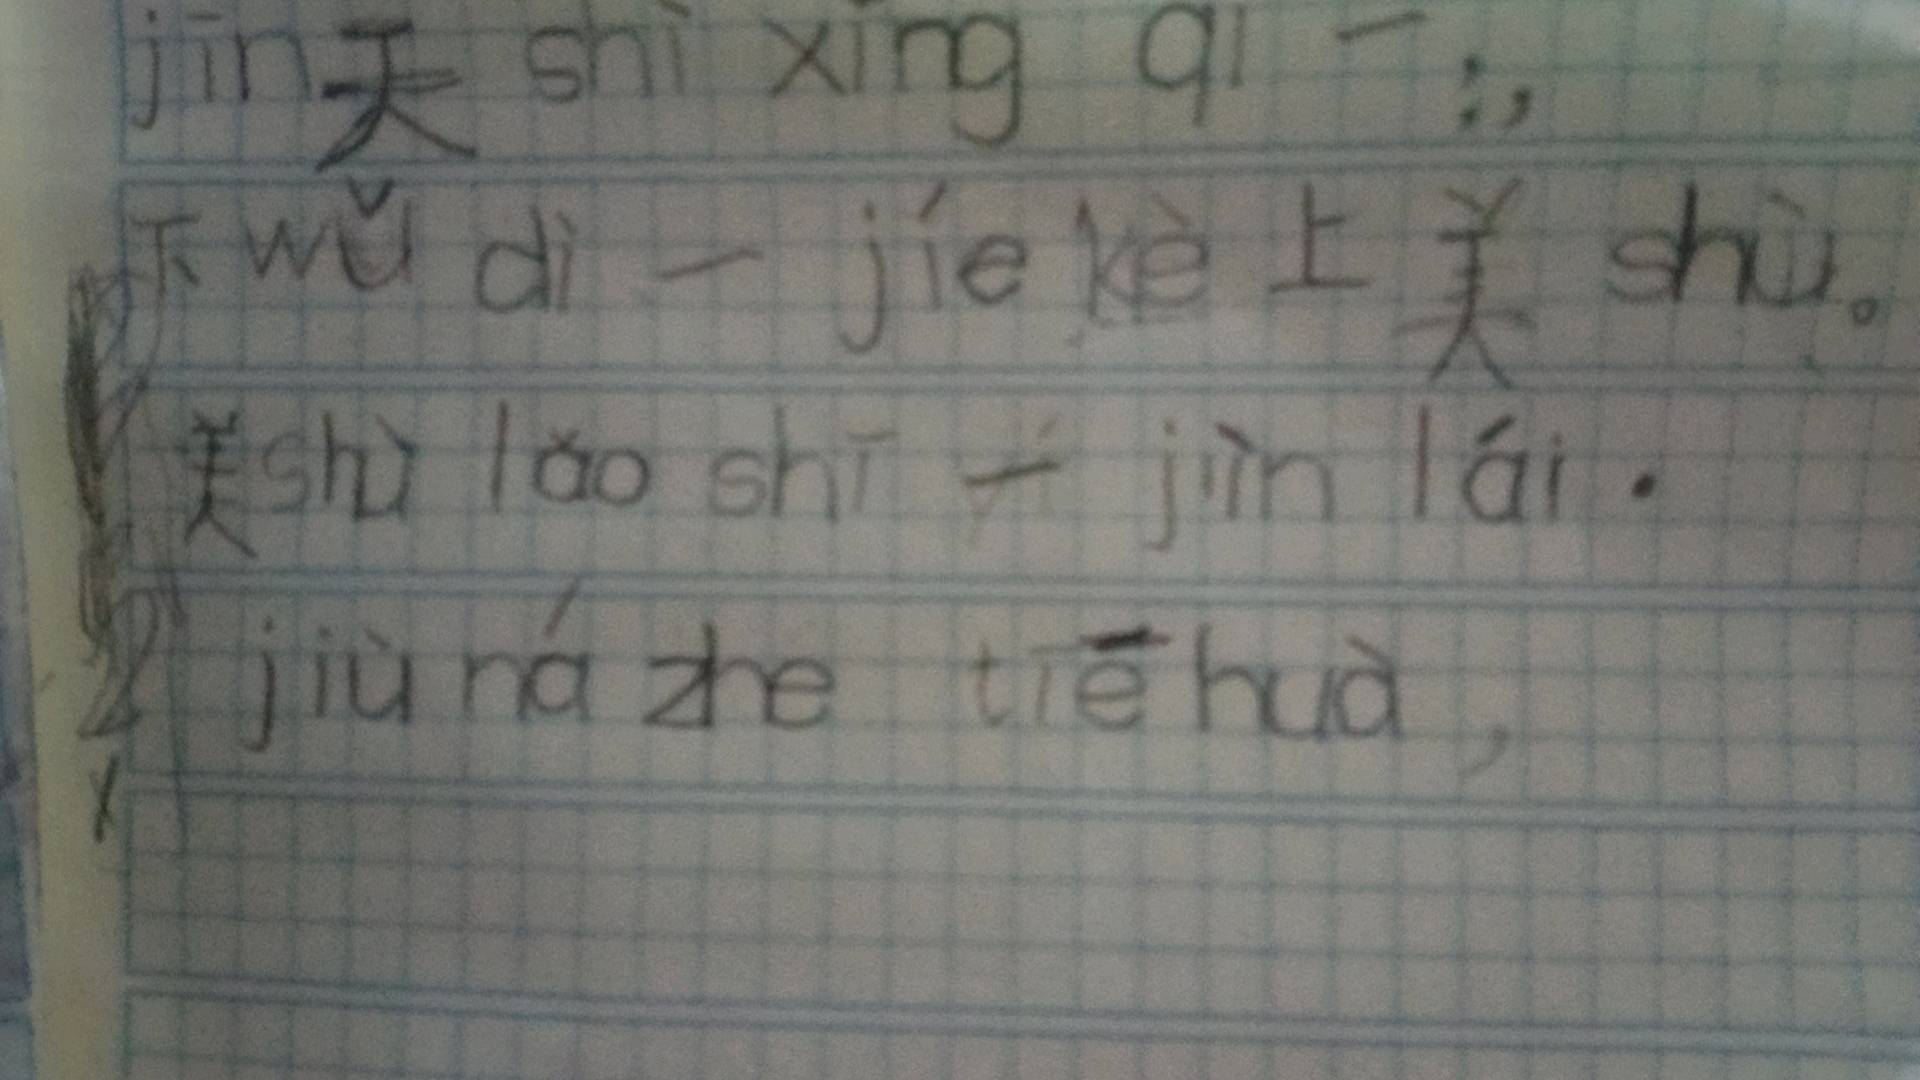 jīn天 shì xīng qī 一;,
下wǔ dì 一 jíe kè 上 美 shù。
美shù lǎo shī 一 jìn lái.
jiù ná zhe tiē huà,